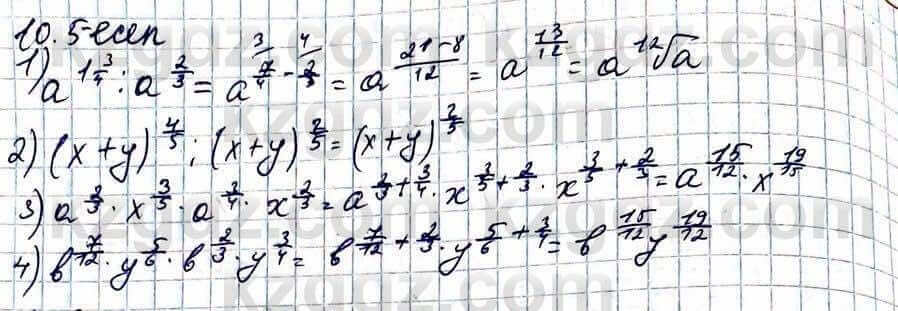 10.5-есеп
1) a^{1\frac{3}{4}} : a^{\frac{2}{3}} = a^{\frac{7}{4} - \frac{2}{3}} = a^{\frac{21-8}{12}} = a^{\frac{13}{12}} = a \sqrt[12]{a}
2) (x+y)^{\frac{4}{5}} : (x+y)^{\frac{2}{5}} = (x+y)^{\frac{2}{5}}
3) a^{\frac{2}{3}} · x^{\frac{3}{5}} · a^{\frac{3}{4}} · x^{\frac{2}{3}} = a^{\frac{2}{3} + \frac{3}{4}} · x^{\frac{3}{5} + \frac{2}{3}} · x^{\frac{3}{5} + \frac{2}{3}} = a^{\frac{15}{12}} · x^{\frac{19}{15}}
4) b^{\frac{7}{12}} · y^{\frac{5}{6}} · b^{\frac{2}{3}} · y^{\frac{3}{4}} = b^{\frac{7}{12} + \frac{2}{3}} · y^{\frac{5}{6} + \frac{3}{4}} = b^{\frac{15}{12}} y^{\frac{19}{12}}
kzgdz.com